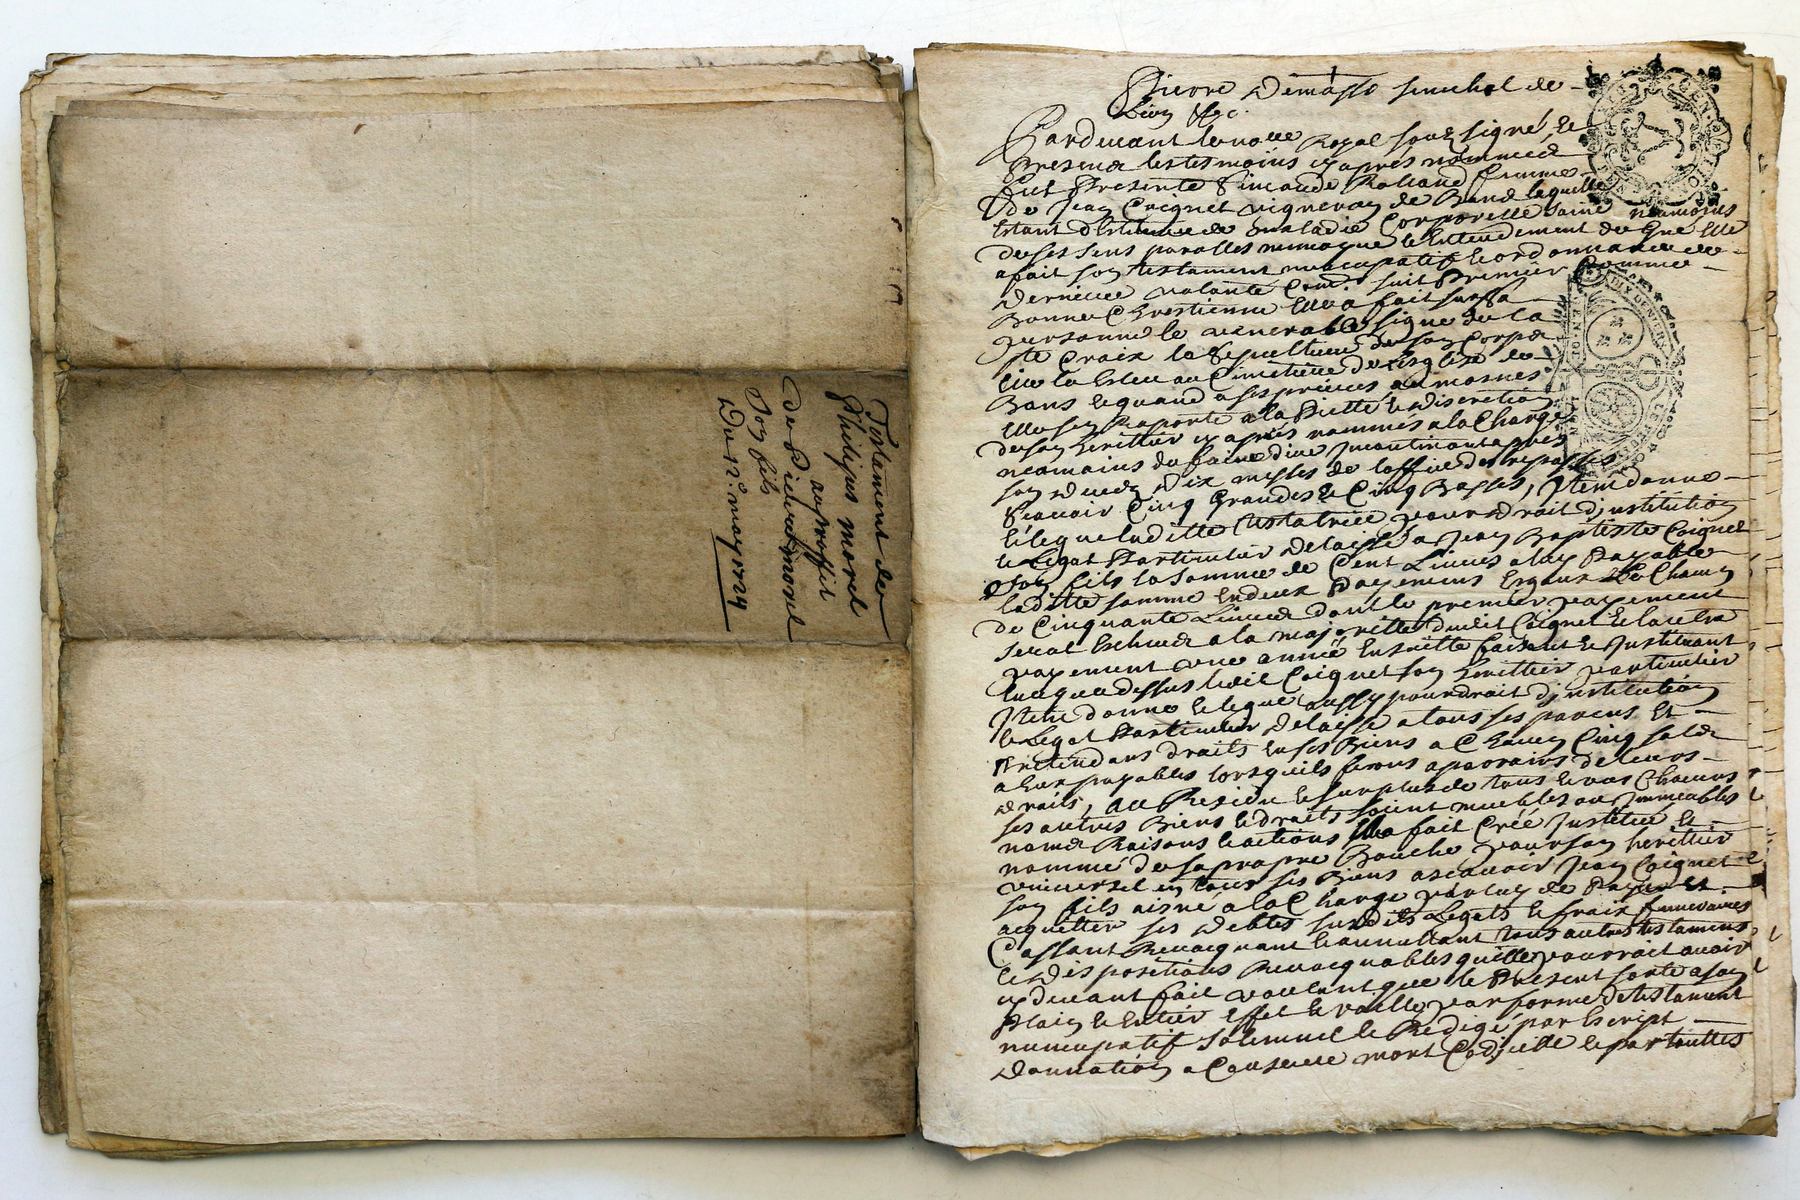 Testament de
Philipus morel
au proffit
de Pierre morel
Soy fils
Du 12e. may 1724
Pierre Demasso senechal de
Lion &c.
Pardevant le no.re Royal souz signé, Et
Presence les tesmoins cy après nommed
fut Presente Rolland femme
de Jean Coignet vigneron de laquelle
Estant maladie Corporelle saine neamoins
de ses sens parolles memoyre Et Entendement de Gré Elle
a fait soy testament nuncupatif Et ordonnance de
Derniere volonté Com.e suit Premier Comme
Bonne Chrestienne Elle a fait sur sa
personne le venerable signe de la
ste Croix la sepulture de soy Corps
Elle la Esleu au Cimetiere de l'Esglise de
quand a ses prieres aumosnes
Elle sen Raporte a la Piette Et Discretion
de soy herittier cy après nommés a la Charge
neamoins de faire dire Incontinant après
soy Decedz Dix messes de l'office des trepassés
scavoir Cinq Grandes Et Cinq Basses, Item donne
Et legue laditte testatrice pour Droit d'institution
Et Legat Particulier Delaissé a Jean Baptiste Coignet
soy fils la somme de Cent Livres a luy Payable
laditte somme En deux Payemens Egaux De Chacuy
de Cinquante Livres dont le premier payement
serat Escheud a la majoritté dudit Coignet Et l'autre
payement une année Ensuitte faisant Et Instituant
ledit Coignet soy herittier particulier
Item donne Et legue aussy pour droit d'institution
Et Legat Particulier Delaisse a tous ses parens Et
Pretendans droits En ses Biens a Chacuy Cinq solds
a Eux payables lorsquils feront aparoir de leurs
droits, Au Residu Et surplus de tous Et uns Chacuns
ses autres Biens Et droits soient meubles ou Immeubles
noms Raisons Et actions Elle a fait Créé Institué Et
nommé de sa propre Bouche pour soy herittier
universel en tous ses Biens a scavoir Jean Coignet
soy fils aisne a la Charge par luy de Payer Et
acquitter ses Debtes susdits Legats Et fraix funeraires
Cassant Revocquant Et annullant tous autres testamens
Et Dispositions Revocquables qu'Elle pourroit avoir
cy devant fait voulant que le Present sorte a soy
Plain Et Entier Effet Et vaille par forme de testament
nuncupatif solemnel Et Redigé par Escript
Donnation a Cause de mort Codicille Et par touttes